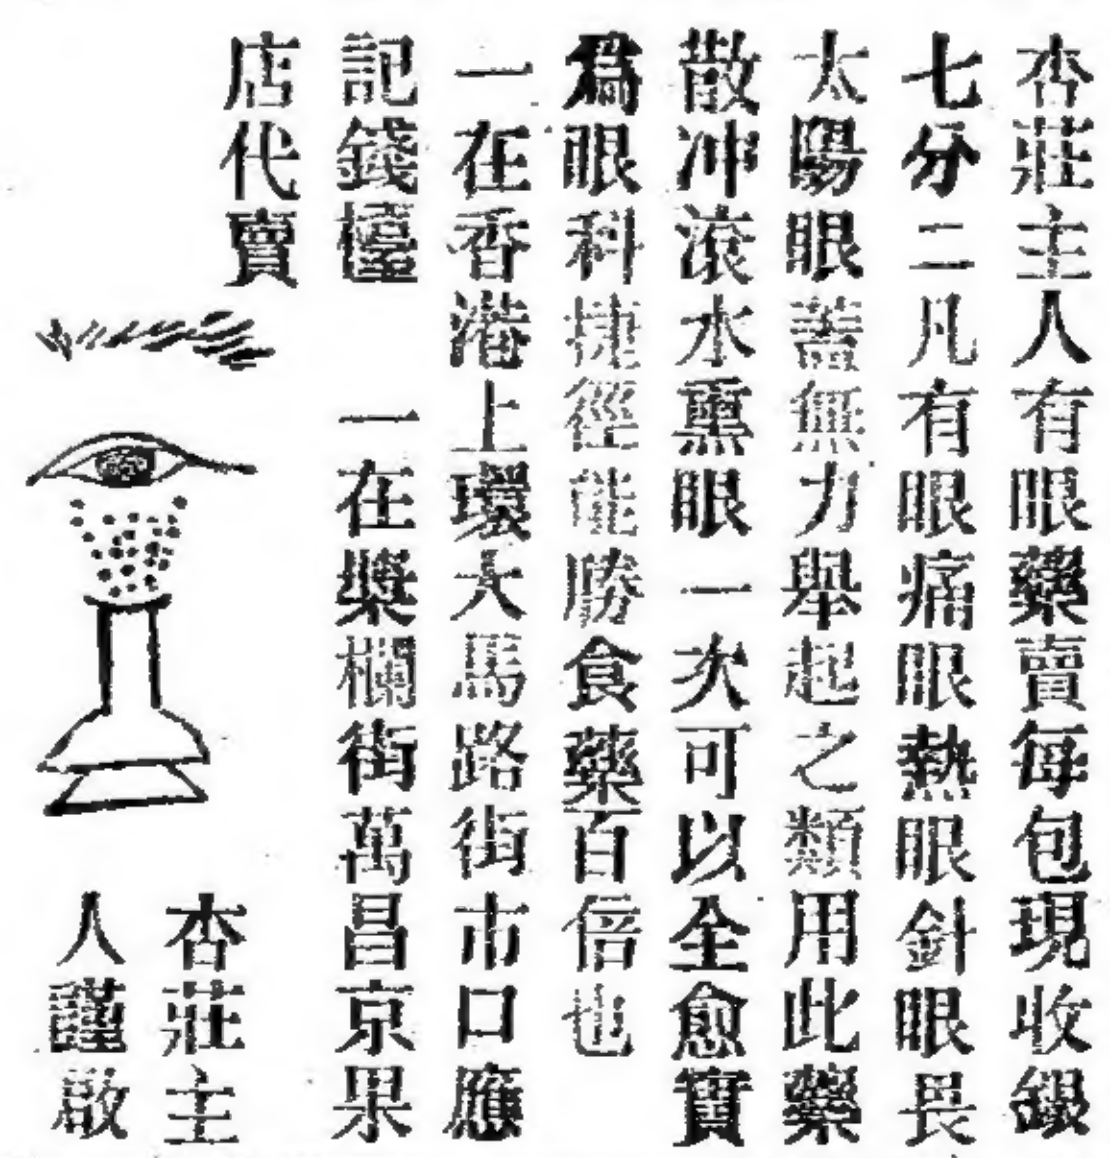 杏莊主人有眼藥賣每包現收銀
七分二凡有眼痛眼熱眼針眼畏
太陽眼蓋無力舉起之類用此藥
散冲滚水熏眼一次可以全愈實
爲眼科捷徑能勝食藥百倍也
一在香港上環大馬路街市口應
記錢檯　一在槳欄街萬昌京果
店代賣
杏莊主
人謹啟